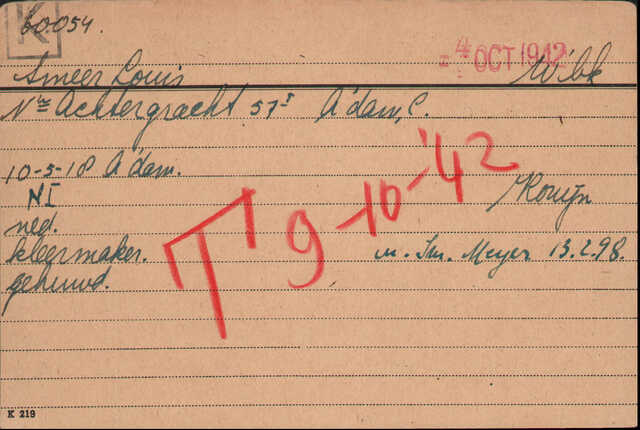 60054.
K
= 4 OCT 1942
Ameer Louis Wbk
Nwe Achtergracht 57 I A'dam, C.
10-5-18 A'dam.
NI Konijn
ned.
kleermaker. m. Sm. Meyer 13.2.98.
gehuwd.
T 9-10-'42
K 219